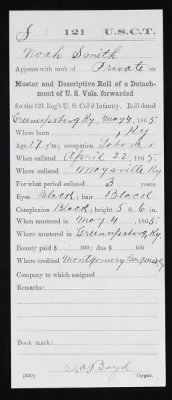 S 121 U.S.C.T.
Noah Smith
Appears with rank of Private on
Muster and Descriptive Roll of a Detach-
ment of U. S. Vols. forwarded
for the 121 Reg't U. S. Col'd Infantry. Roll dated
Greenupsburg, Ky., May 4, 1865.
Where born , Ky
Age 17 y'rs; occupation Laborer
When enlisted April 22, 1865.
Where enlisted Maysville Ky
For what period enlisted 3 years.
Eyes Black; hair Black
Complexion Black; height 5 ft. 6 in.
When mustered in May 4, 1865.
Where mustered in Greenupsburg, Ky.
Bounty paid $ 100; due $ 100
Where credited Montgomery
Company to which assigned
Remarks:
Book mark:
Boyd
Copyist.